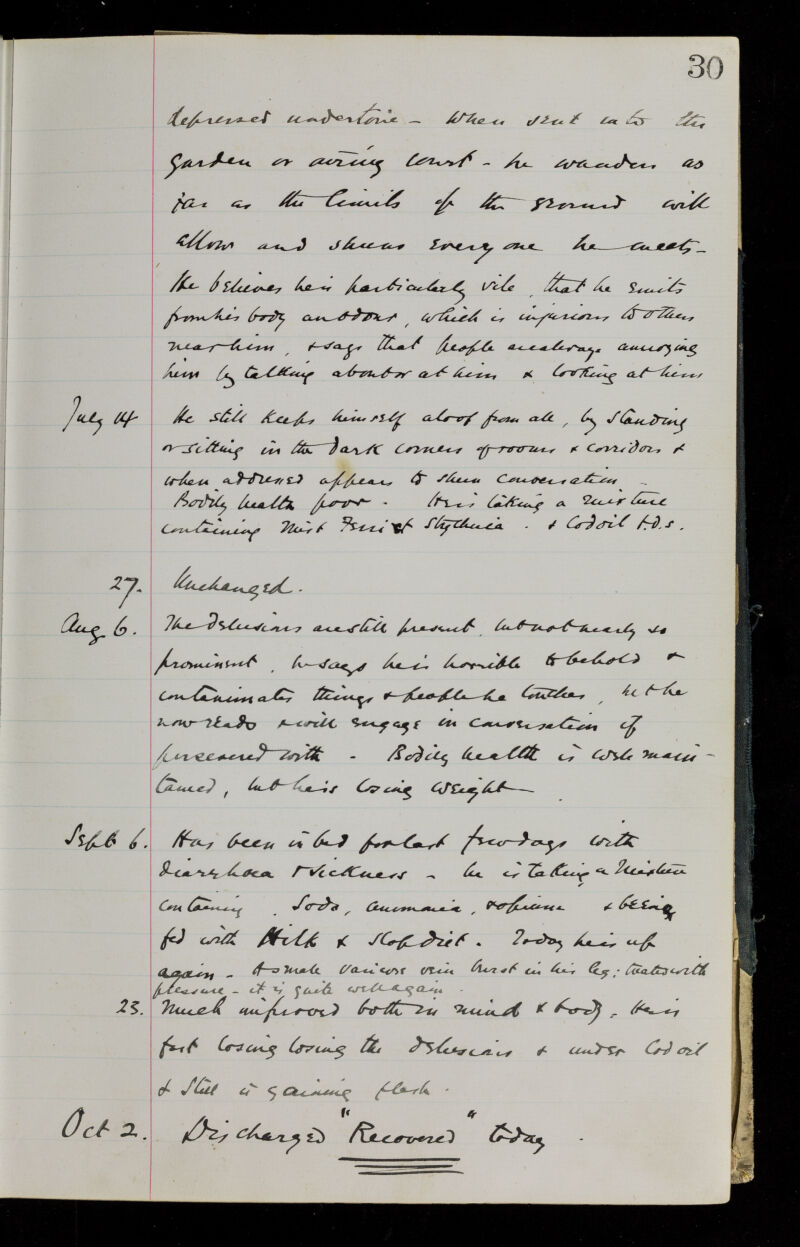 30
depressed undertone - When sent into the
garden or airing court - he wanders as
far as the limits of the ground will
allow and shuns everyone he meets -
He believes he is particularly vile, that he emits
from his body an odour, which is injurious to others
near him, & says that people are always annoying
him by talking about or at him & looking at him
July 14 He still keeps himself aloof from all, by standing
or sitting in the dark corners of rooms & corridors &
when addressed appears to shun conversation -
Bodily health poor - He is taking a mixture
containing Mist Ferri et Strychnia . & Cod oil t.d.s.
27. Unchanged.
Aug 6. The delusions are still present, but not nearly so
prominent, he says he is horrible to behold &
contaminates things & people he touches, but he
now reads & will engage in conversation if
persevered with - Bodily health is well main-
tained, but he is losing weight -
Sept 6. Has been in bed for last few days with
diarrhoea & sickness - he is taking a mixture
containing Soda, ammonia, & opium & being
fed with Milk & Slop diet. Today he is up
again - A small varicose vein burst in his leg: treated with
pressure - it is quite well again.
23. Much improved both in mind & body. He is
fast losing losing the delusions & under Cod oil
& Still is gaining flesh.
Oct 2. Discharged "Recovered" today.